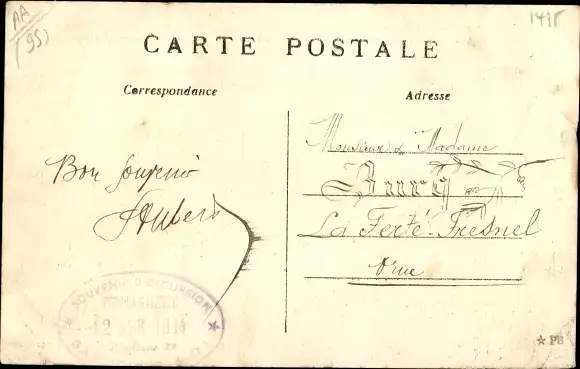 AA
(95)
1415
CARTE POSTALE
Correspondance
Adresse
Bon Souvenir
Monsieur & Madame
Bury
La Ferté-Fresnel
Orne
SOUVENIR D'EXCURSION
2 1914
PB